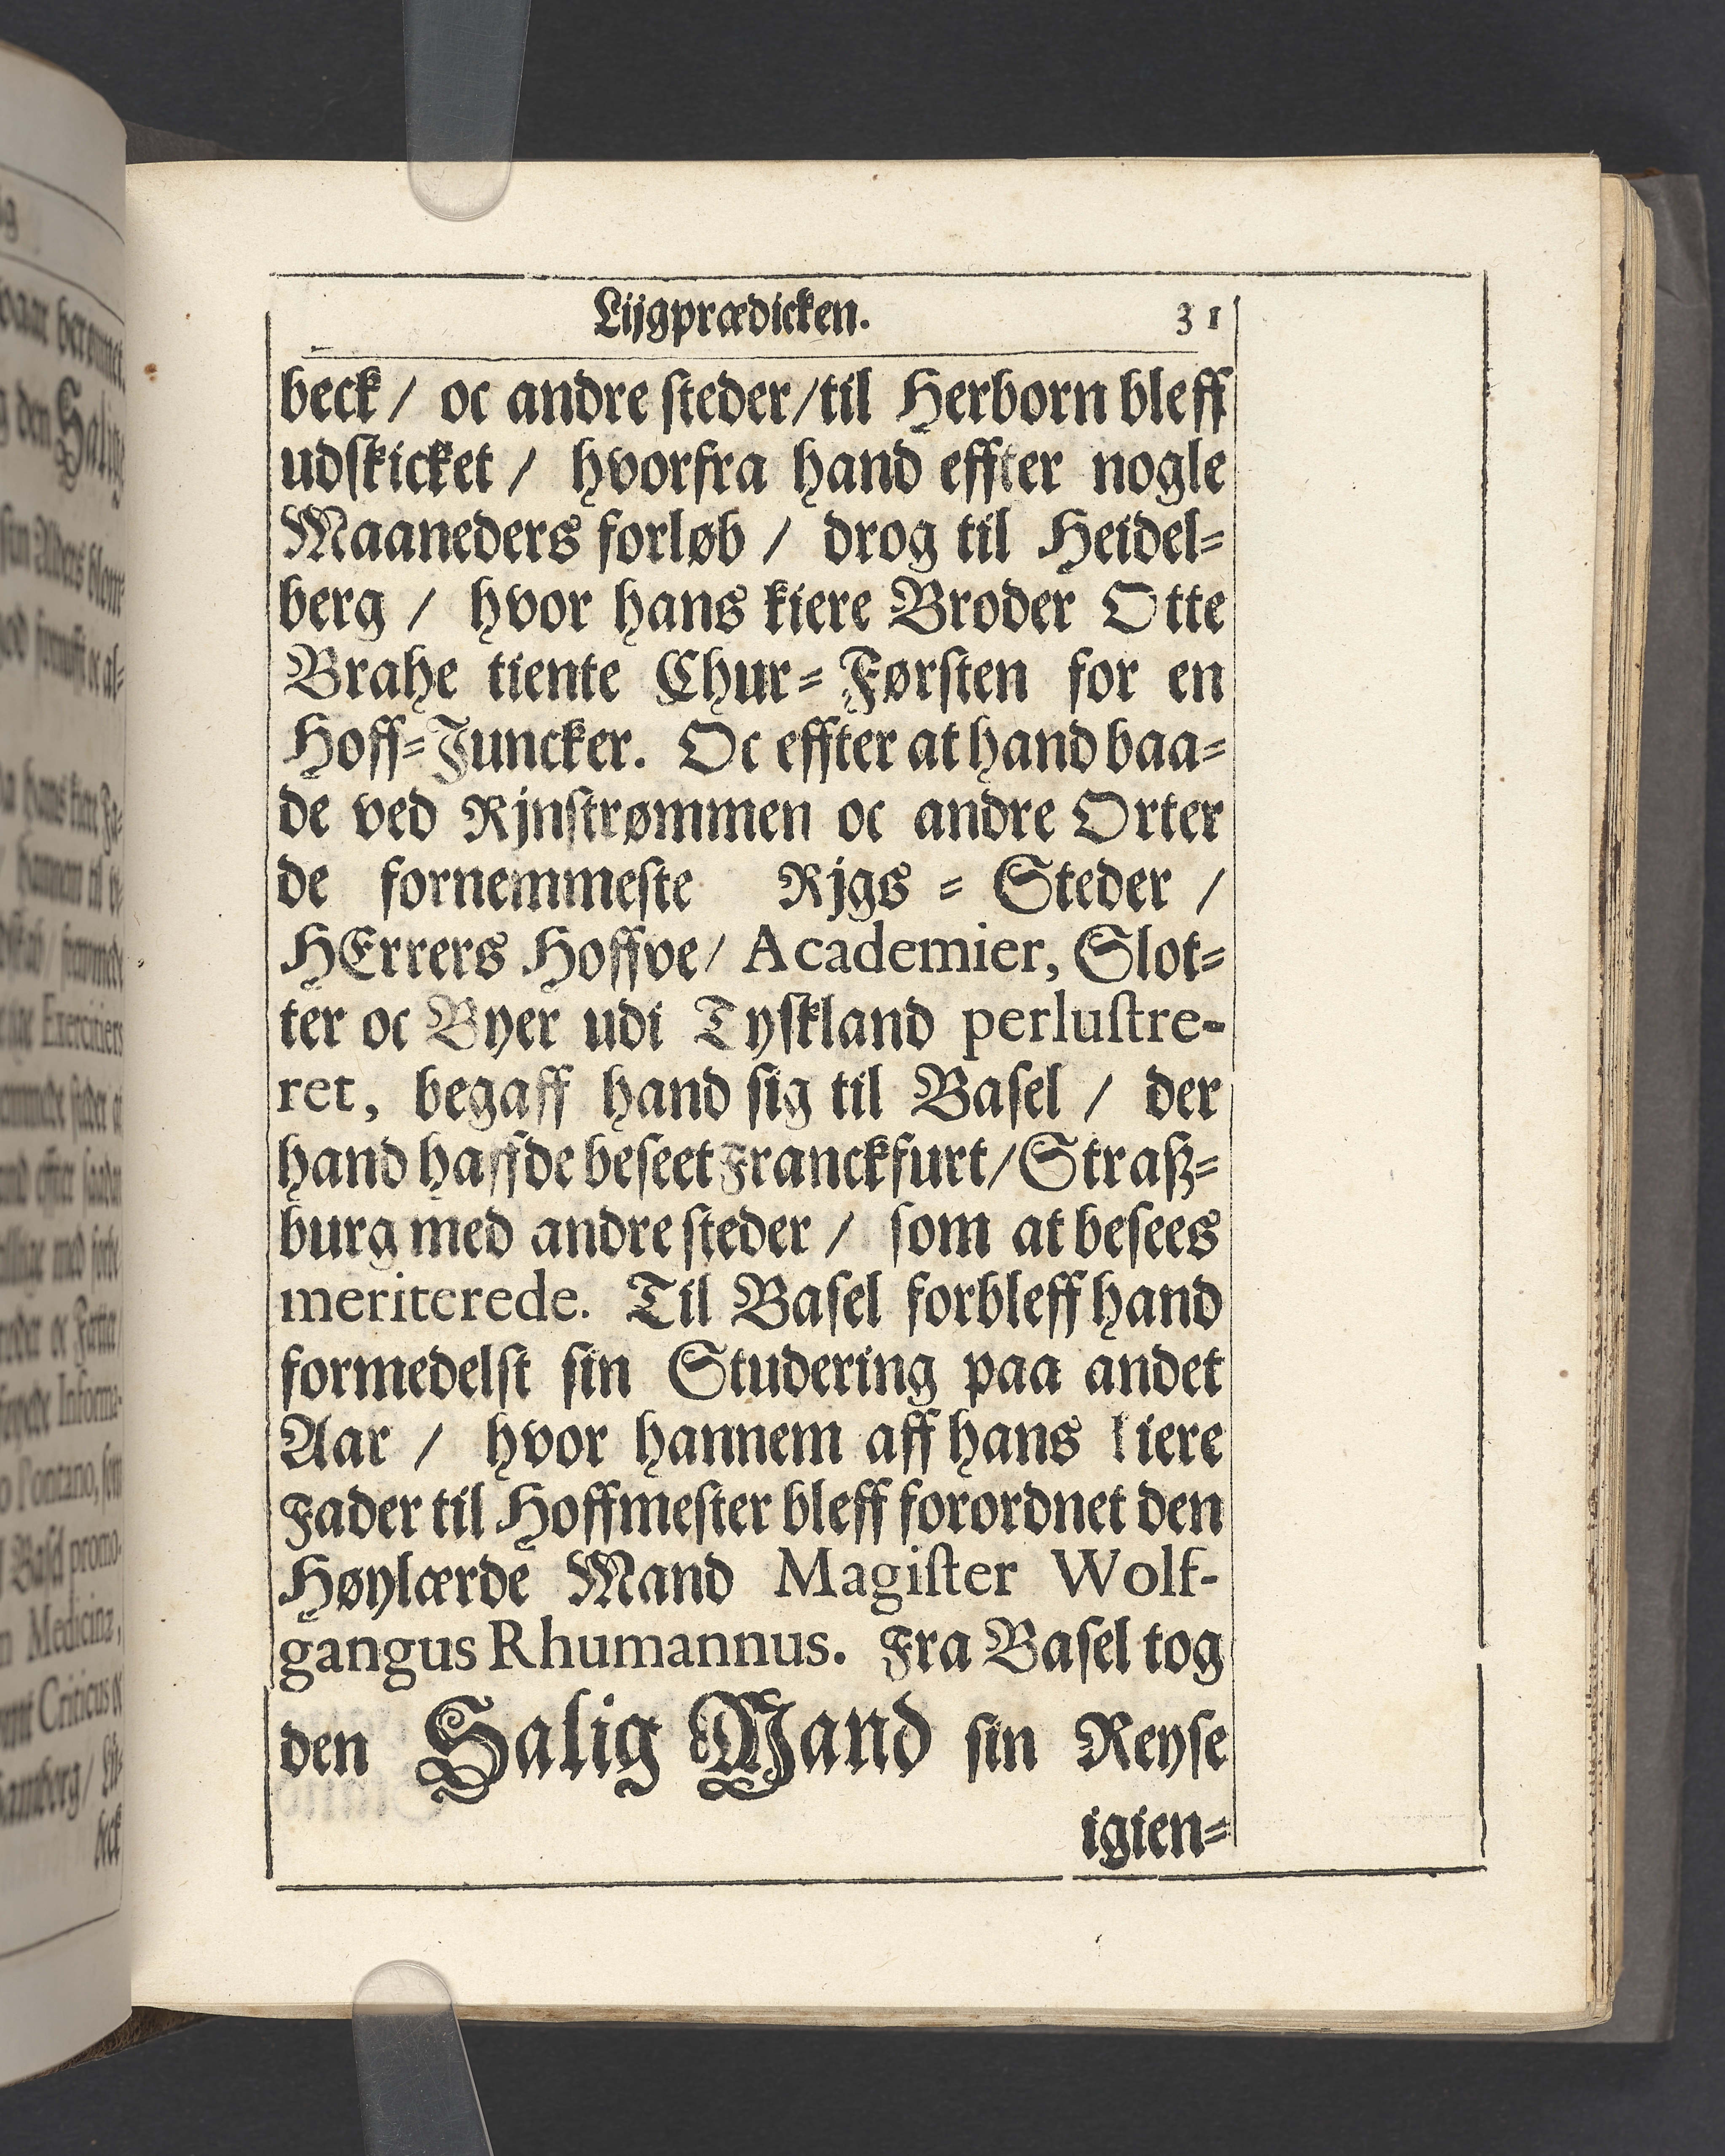 Lijgprædicken. 31
beck / oc andre steder / til Herborn bleff
udskicket / hvorfra hand effter nogle
Maaneders forløb / drog til Heidel=
berg / hvor hans kiere Broder Otte
Brahe tiente Chur=Førsten for en
Hoff=Juncker. Oc effter at hand baa=
de ved Rjnstrømmen oc andre Orter
de fornemmeste Rjgs = Steder /
HErrers Hoffve / Academier, Slot=
ter oc Byer udi Tyskland perlustre-
ret, begaff hand sig til Basel / der
hand haffde beseet Franckfurt / Straß=
burg med andre steder / som at besees
meriterede. Til Basel forbleff hand
formedelst sin Studering paa andet
Aar / hvor hannem aff hans kiere
Fader til Hoffmester bleff forordnet den
Høylærde Mand Magister Wolf-
gangus Rhumannus. Fra Basel tog
den Salig Mand sin Reyse
igien=